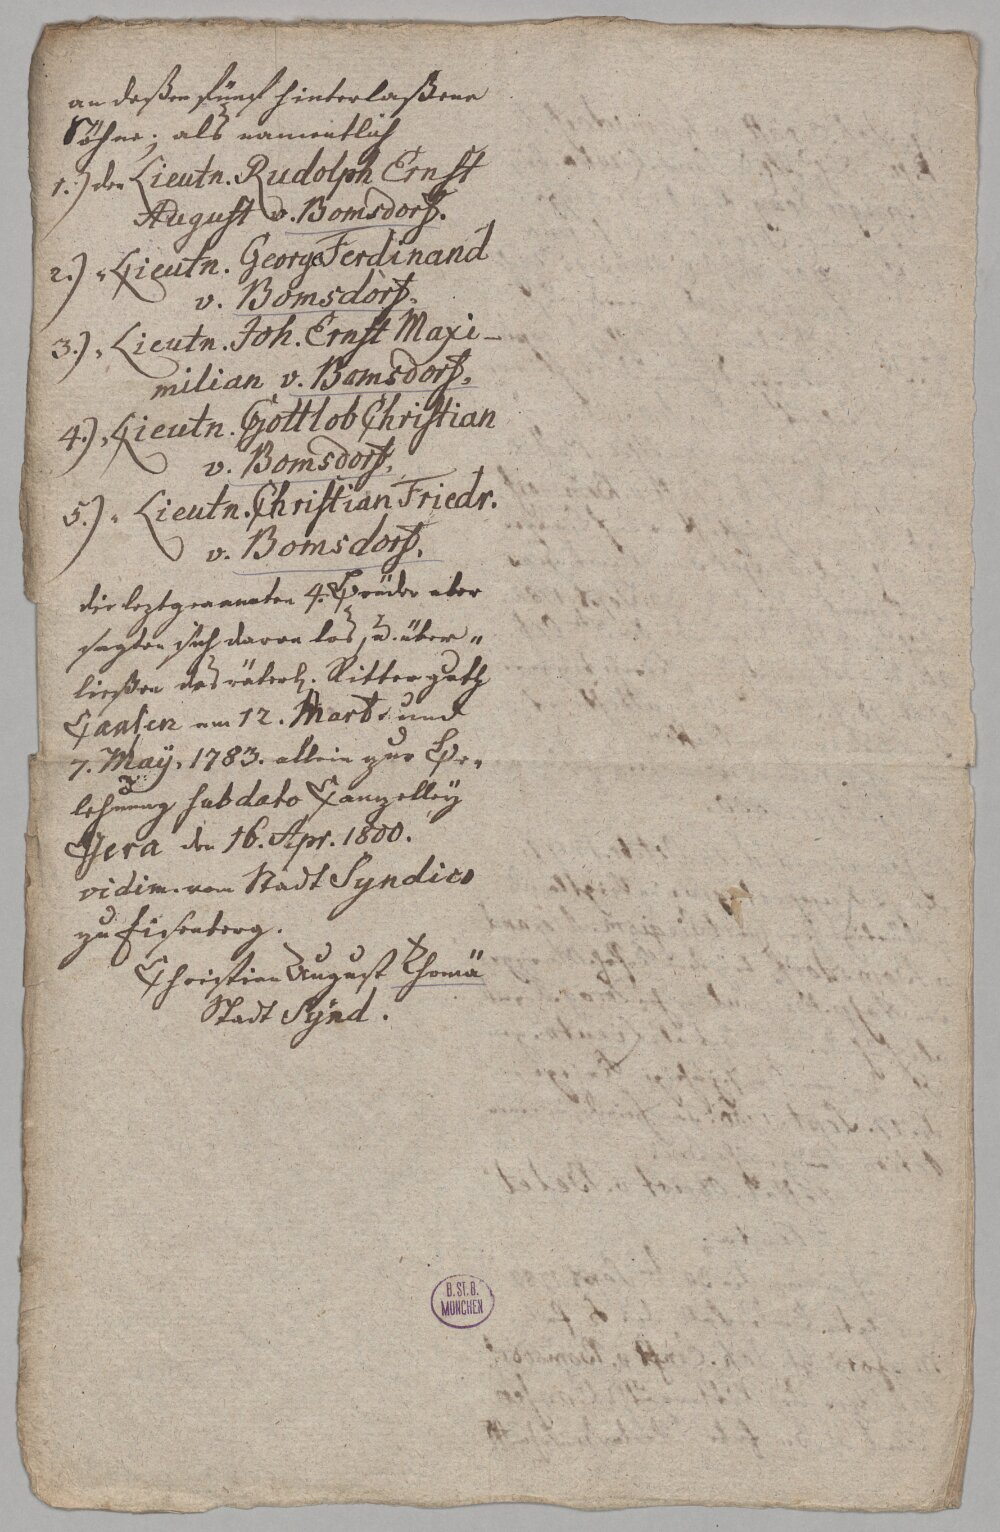 an deßen fünf hinterlaßene
Söhne; als namentlich
1.) den Lieutn. Rudolph Ernst
August v. Bomsdorf.
2.) " Lieutn. George Ferdinand
v. Bomsdorf.
3.) " Lieutn. Joh. Ernst Maxi-
milian v. Bomsdorf.
4.) " Lieutn. Gottlob Christian
v. Bomsdorf.
5.) " Lieutn. Christian Friedr.
v. Bomsdorf.
die leztgenannten 4. Brüder aber
sagten sich davon los, u. über„
ließen das väterl. Ritterguth
am 12. Mart. und
7. Maÿ. 1783. allein zur Be„
lehnung sub dato Canzelleÿ
Gera den 16. Apr. 1800.
vidim. vom Stadt Syndico
zu Eisenberg.
Christian August Thomä
Stadt Sÿnd.
B.St.B.
MÜNCHEN